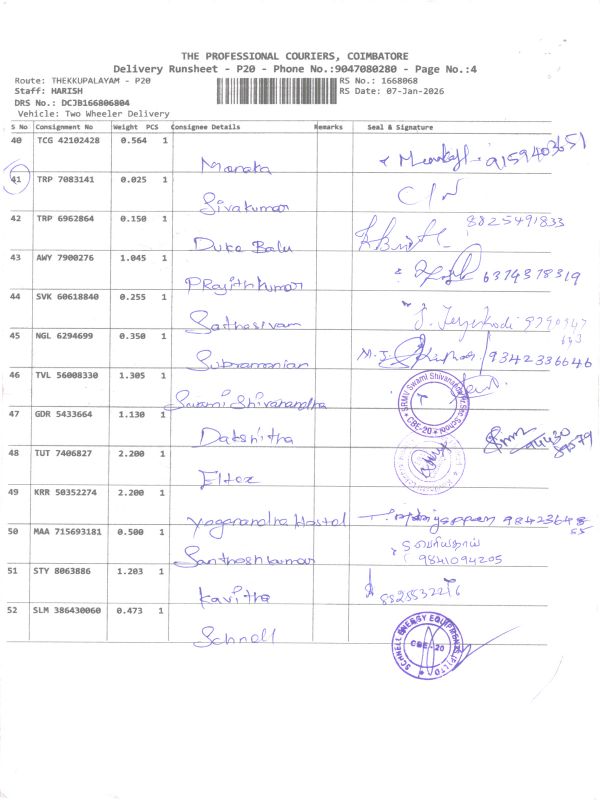 THE PROFESSIONAL COURIERS, COIMBATORE
Delivery Runsheet - P20 - Phone No.:9047080280 - Page No.:4
Route: THEKKUPALAYAM - P20 RS No.: 1668068
Staff: HARISH RS Date: 07-Jan-2026
DRS No.: DCJB166806804
Vehicle: Two Wheeler Delivery
S No Consignment No Weight PCS Consignee Details Remarks Seal & Signature
40 TCG 42102428 0.564 1 9159403651
41 TRP 7083141 0.025 1 Sivakumar
42 TRP 6962864 0.150 1 Duke Balu 8825491833
43 AWY 7900276 1.045 1 PRajithkumar 6374378319
44 SVK 60618840 0.255 1 Sathasivam
45 NGL 6294699 0.350 1 Subramanian 9342336646
46 TVL 56008330 1.305 1 Swami Shivanandha
47 GDR 5433664 1.130 1 Dakshitha
48 TUT 7406827 2.200 1
49 KRR 50352274 2.200 1 Yoganandha Hostel
50 MAA 715693181 0.500 1 Santhoshkumar 9841094205
51 STY 8063886 1.203 1 Kavitha
52 SLM 386430060 0.473 1 Schnell
SCHNELL ENERGY EQUIPMENTS (P) LTD
CBE-20